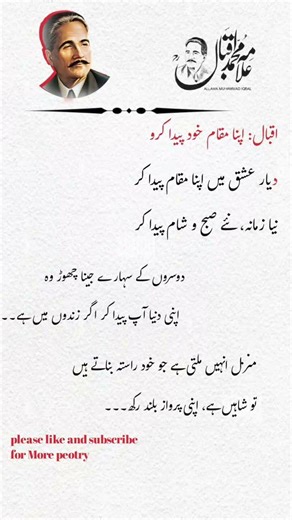 علامہ محمد اقبال
ALLAMA MUHAMMAD IQBAL
اقبال: اپنا مقام خود پیدا کرو
دیار عشق میں اپنا مقام پیدا کر
نیا زمانہ، نئے صبح و شام پیدا کر
دوسروں کے سہارے جینا چھوڑ وہ
اپنی دنیا آپ پیدا کر اگر زندوں میں ہے۔۔
منزل انہیں ملتی ہے جو خود راستہ بناتے ہیں
تو شاہیں ہے، اپنی پرواز بلند رکھ۔۔۔
please like and subscribe
for More peotry